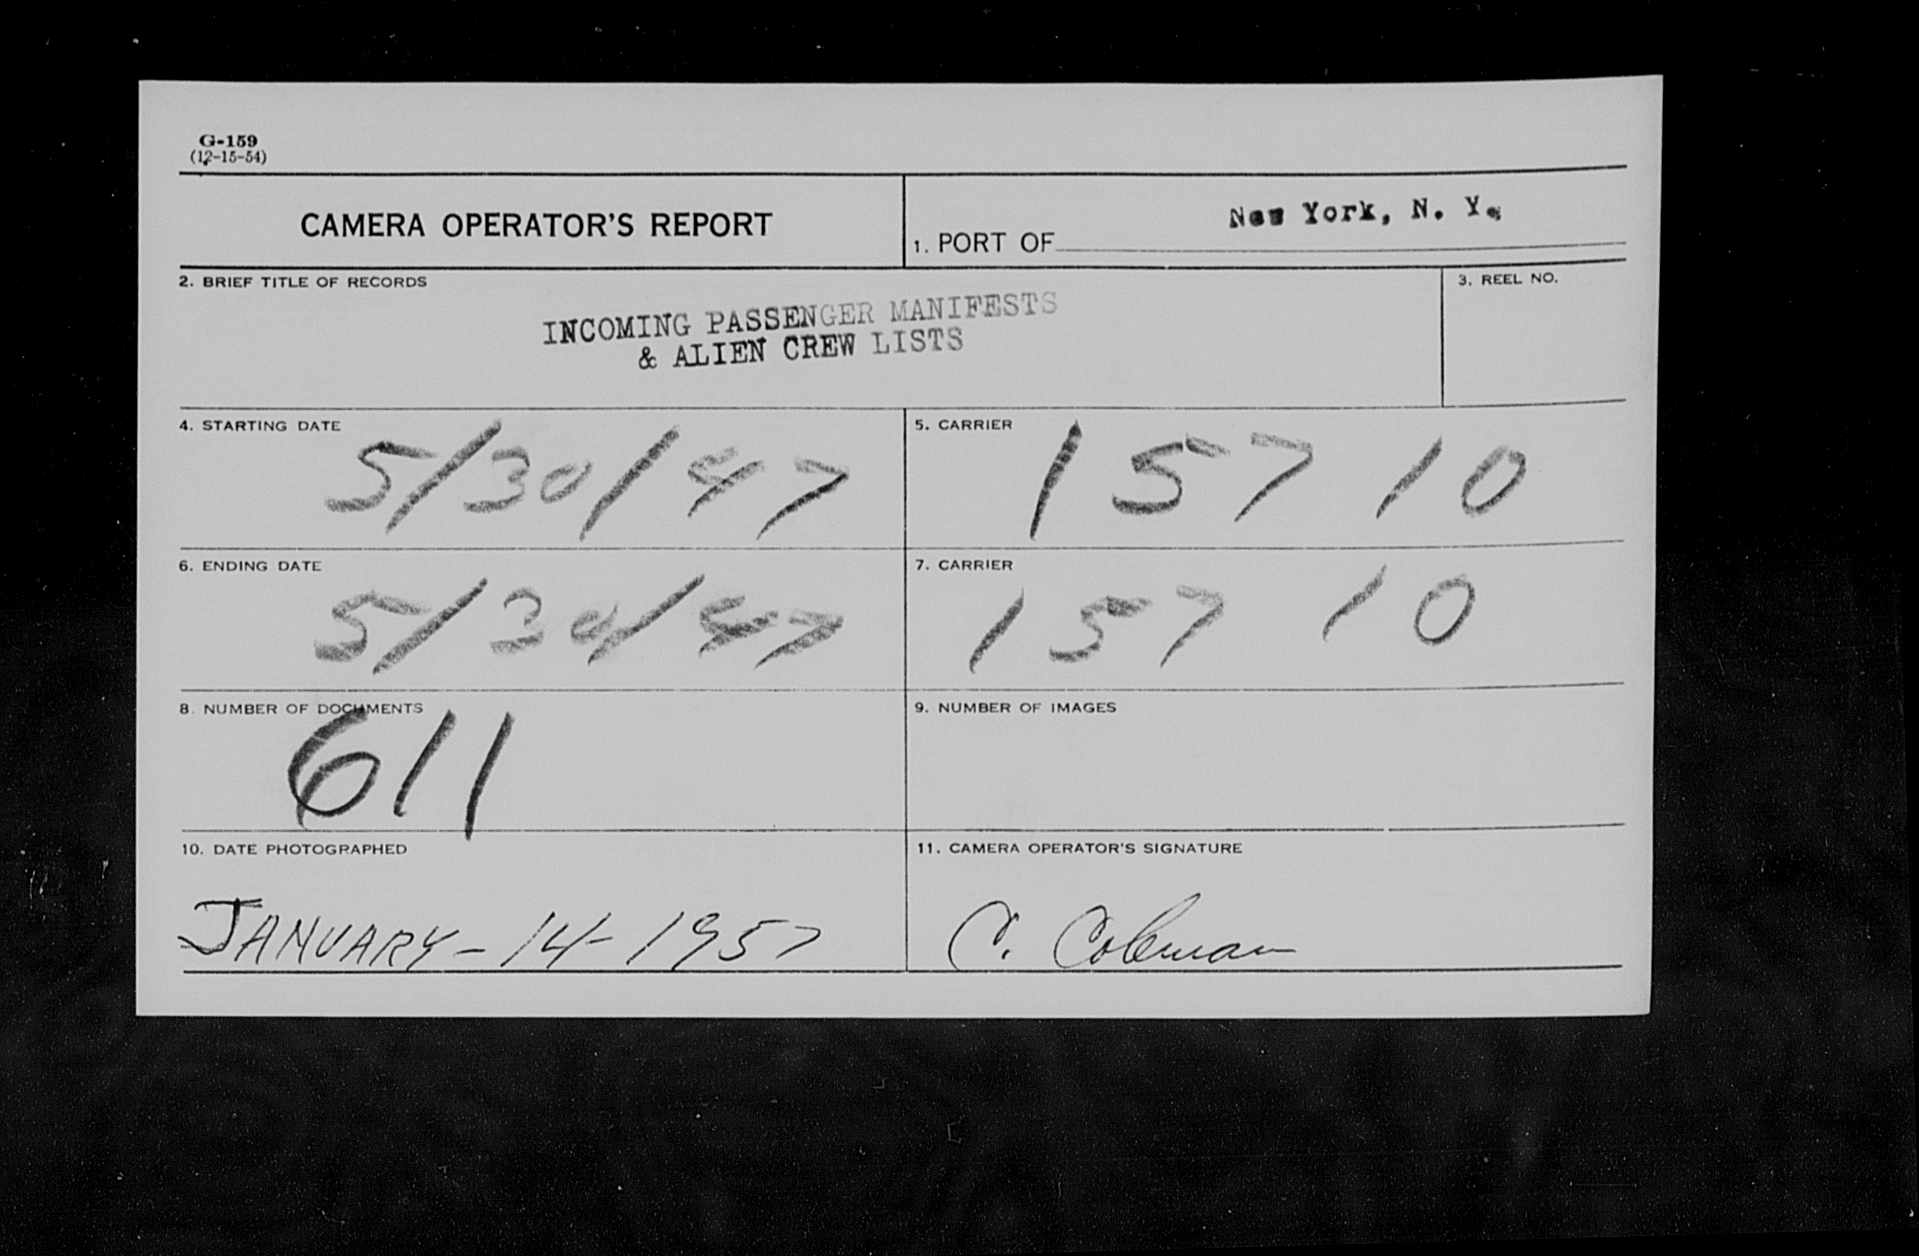 G-159
(12-15-54)
CAMERA OPERATOR'S REPORT
1. PORT OF New York, N. Y.
2. BRIEF TITLE OF RECORDS
INCOMING PASSENGER MANIFESTS
& ALIEN CREW LISTS
3. REEL NO.
4. STARTING DATE
5/30/47
5. CARRIER
157 10
6. ENDING DATE
5/30/47
7. CARRIER
157 10
8. NUMBER OF DOCUMENTS
611
9. NUMBER OF IMAGES
10. DATE PHOTOGRAPHED
JANUARY-14-1957
11. CAMERA OPERATOR'S SIGNATURE
C. Coleman